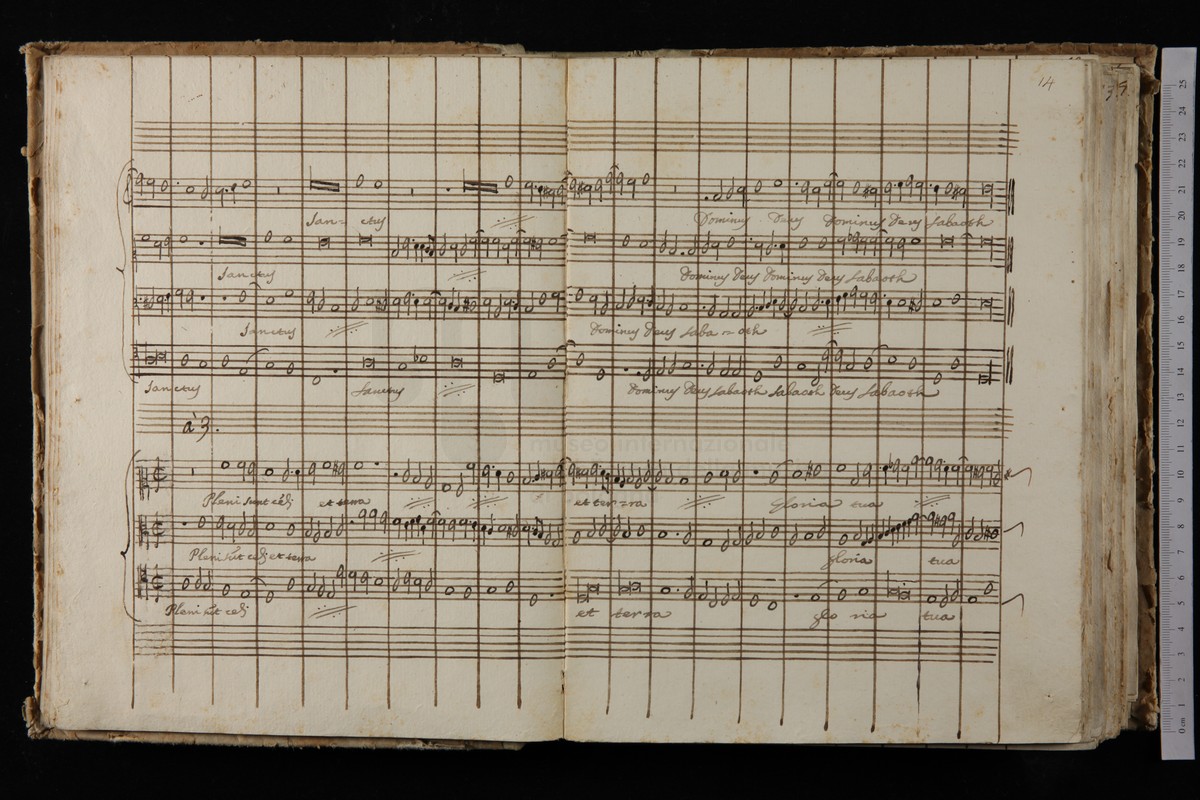 14
39.
San= ctus Dominus Deus Dominus Deus Sabaoth
Sanctus Dominus Deus Dominus Deus Sabaoth
Sanctus Dominus Deus Saba = oth
Sanctus Sanctus Dominus Deus Sabaoth Sabaoth Deus Sabaoth
à 3.
museo internazionale
Pleni sunt celi et terra et ter=ra Gloria tua
Pleni sut celi et terra gloria tua
Pleni sut celi et terra glo ria tua
0 cm 1 2 3 4 5 6 7 8 9 10 11 12 13 14 15 16 17 18 19 20 21 22 23 24 25